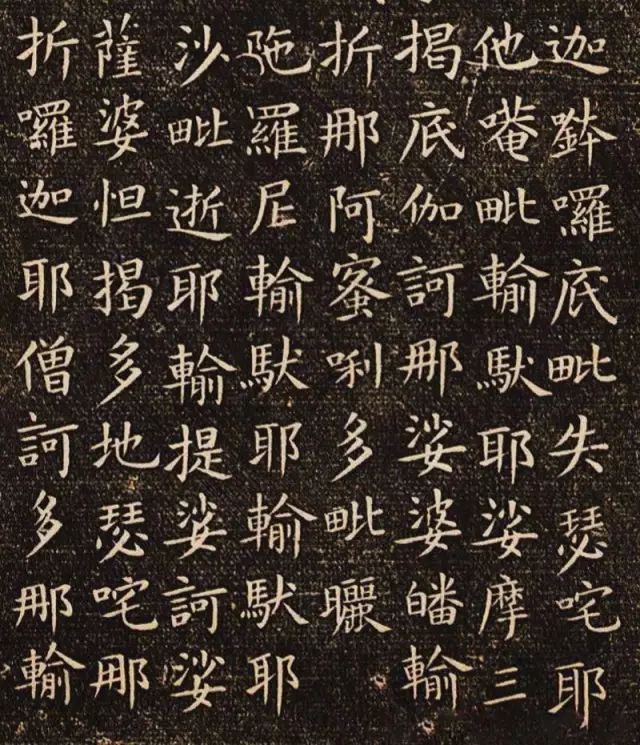 迦鉢囉底毗失瑟咤耶
他唵毗輸馱耶娑摩三
揭底伽訶那娑婆皤輸
折那阿蜜唎多毗曬
陁羅尼輸馱耶輸馱耶
沙毗逝耶輸提娑訶娑
薩婆怛揭多地瑟咤那
折囉迦耶僧訶多那輸